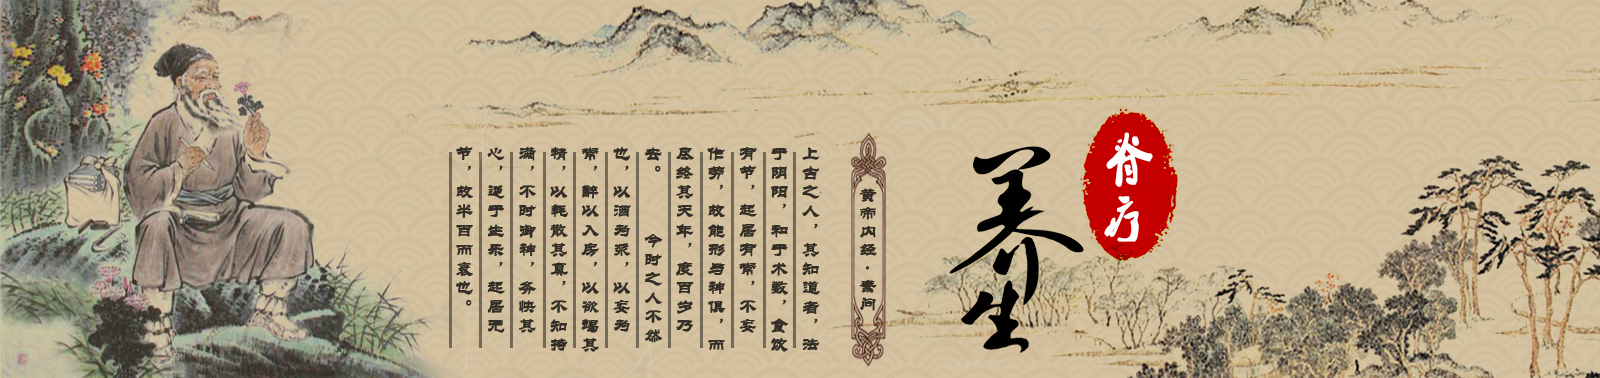 脊疗
养生
黄帝内经·素问
上古之人，其知道者，法
于阴阳，和于术数，食饮
有节，起居有常，不妄
作劳，故能形与神俱，而
尽终其天年，度百岁乃
去。 今时之人不然
也，以酒为浆，以妄为
常，醉以入房，以欲竭其
精，以耗散其真，不知持
满，不时御神，务快其
心，逆于生乐，起居无
节，故半百而衰也。